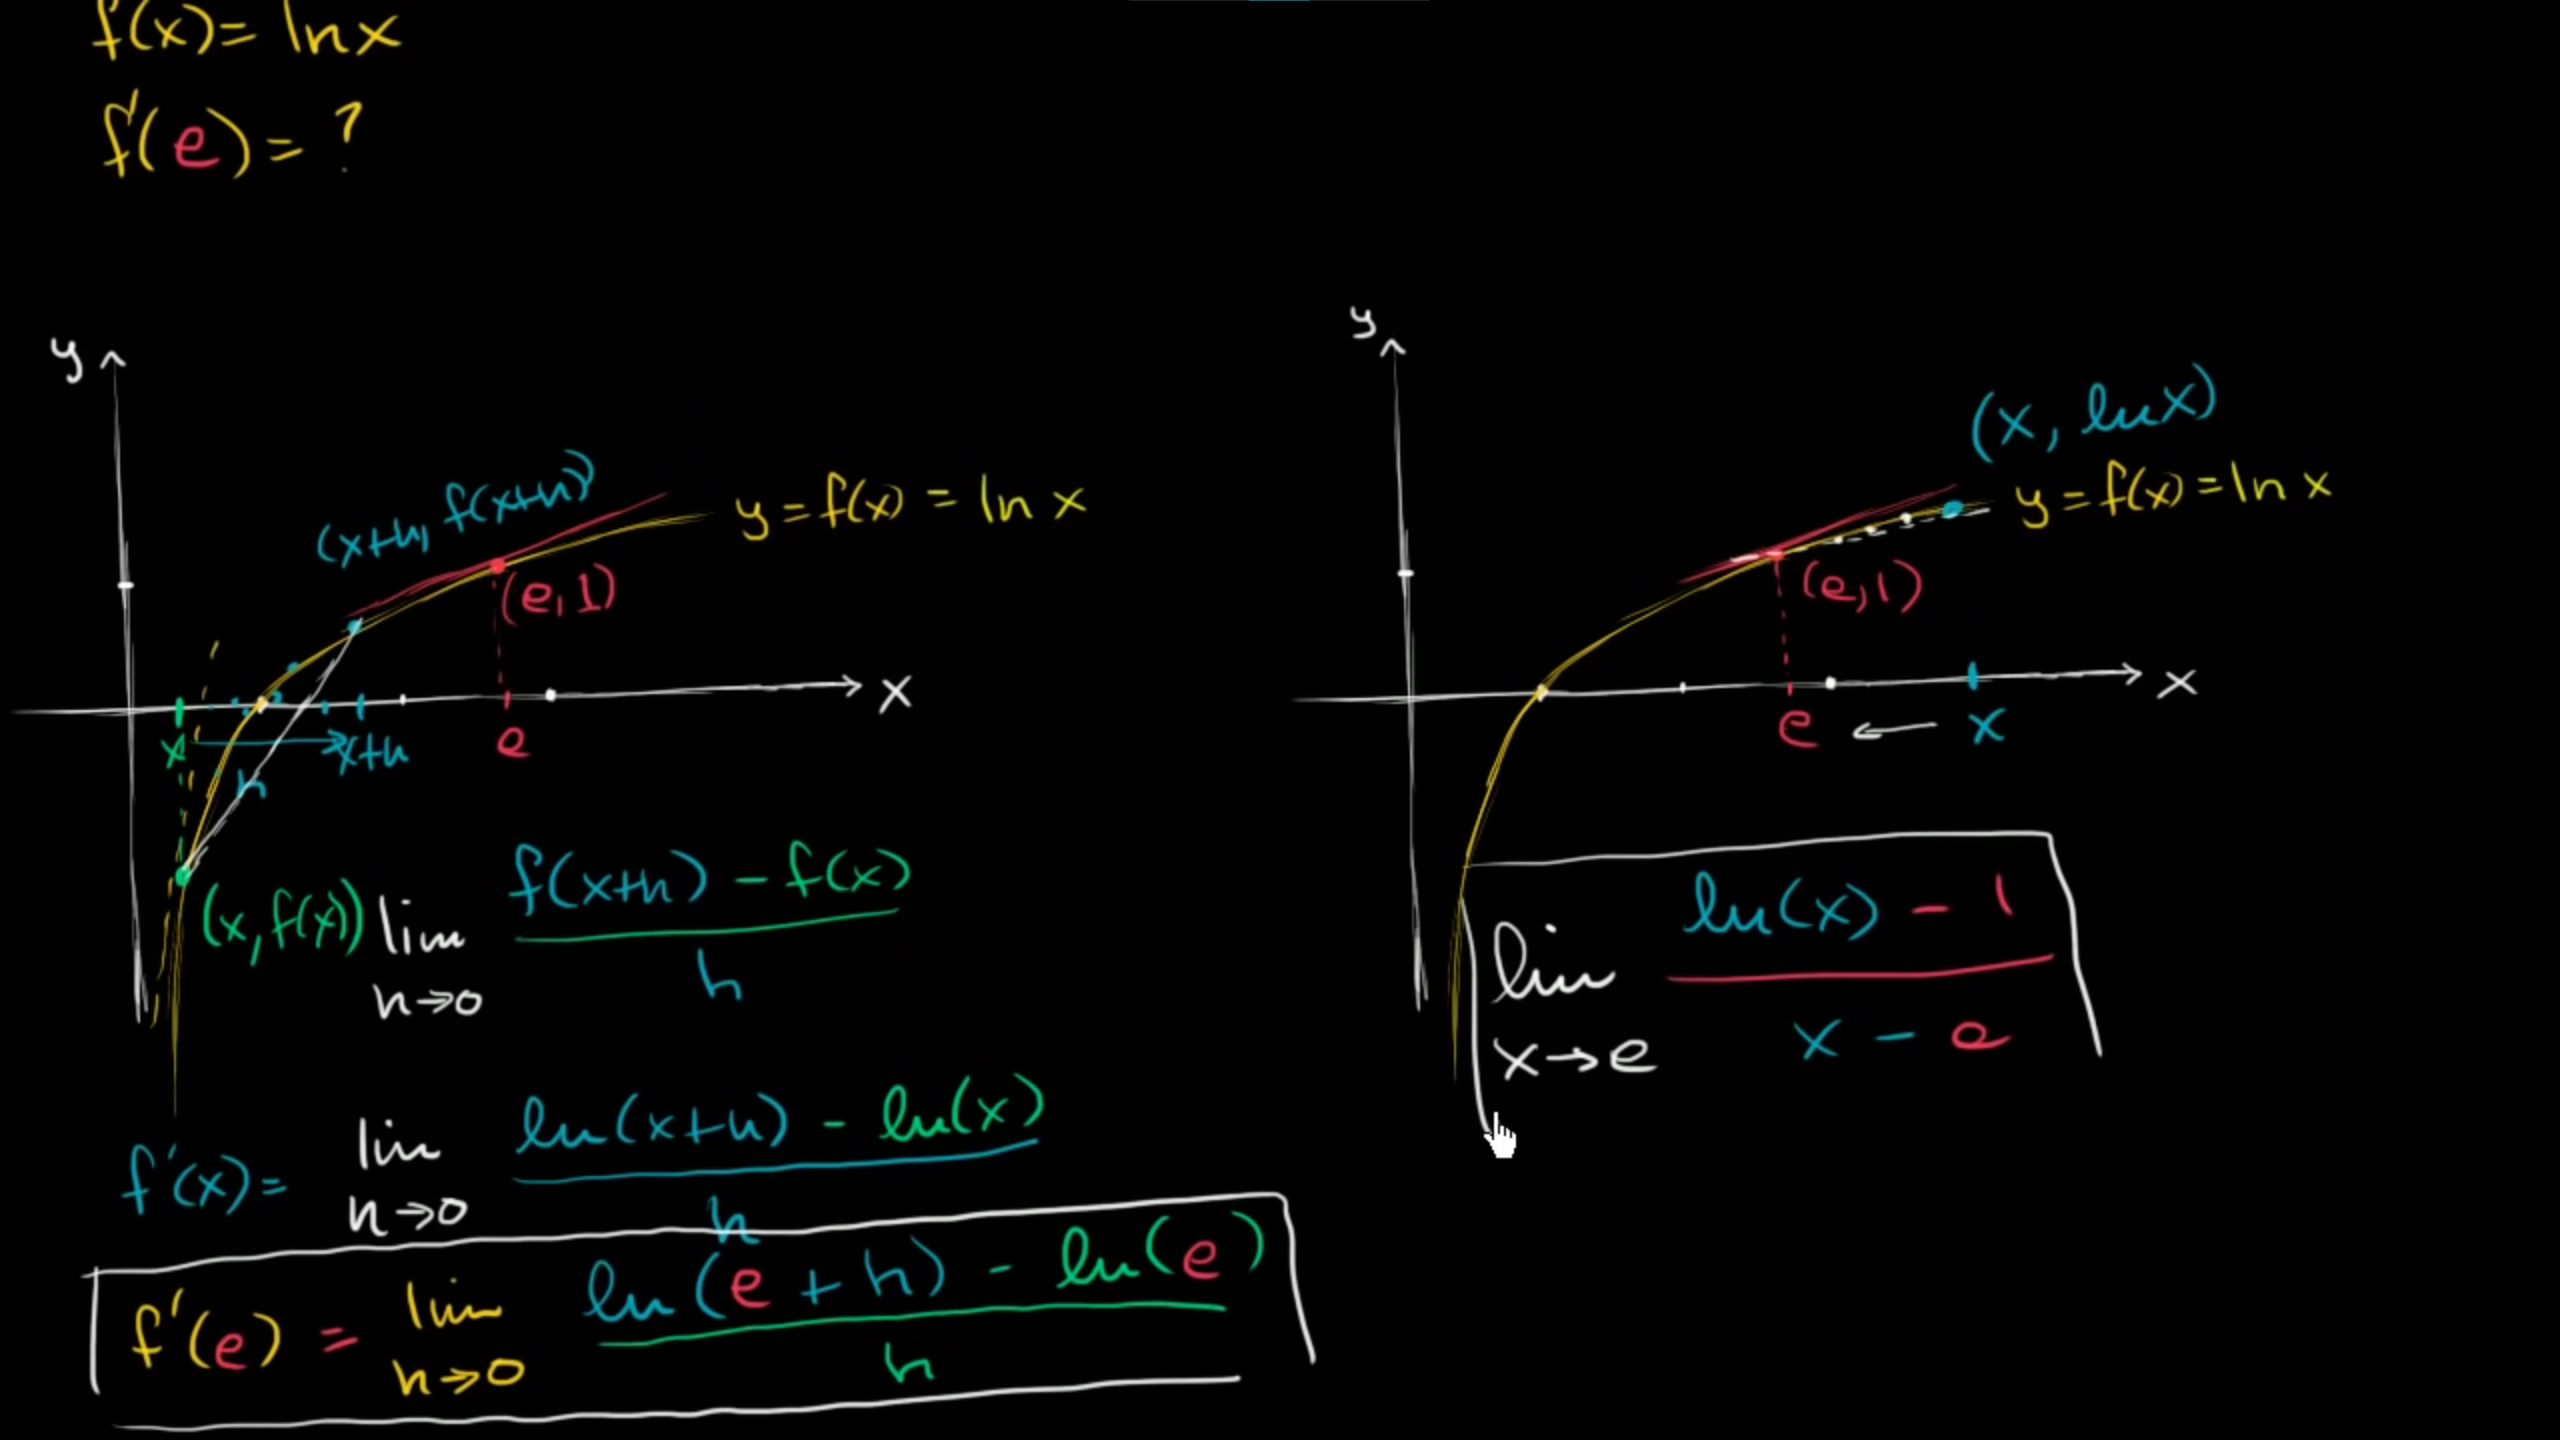 f(x) = ln x
f'(e) = ?
y
(x+h, f(x+h))
y = f(x) = ln x
(e, 1)
x
x
h
x+h
e
(x, f(x))
lim h→0 f(x+h) - f(x) / h
f'(x) = lim h→0 ln(x+h) - ln(x) / h
f'(e) = lim h→0 ln(e + h) - ln(e) / h
y
(x, ln x)
y = f(x) = ln x
(e, 1)
x
e ← x
lim x→e ln(x) - 1 / x - e